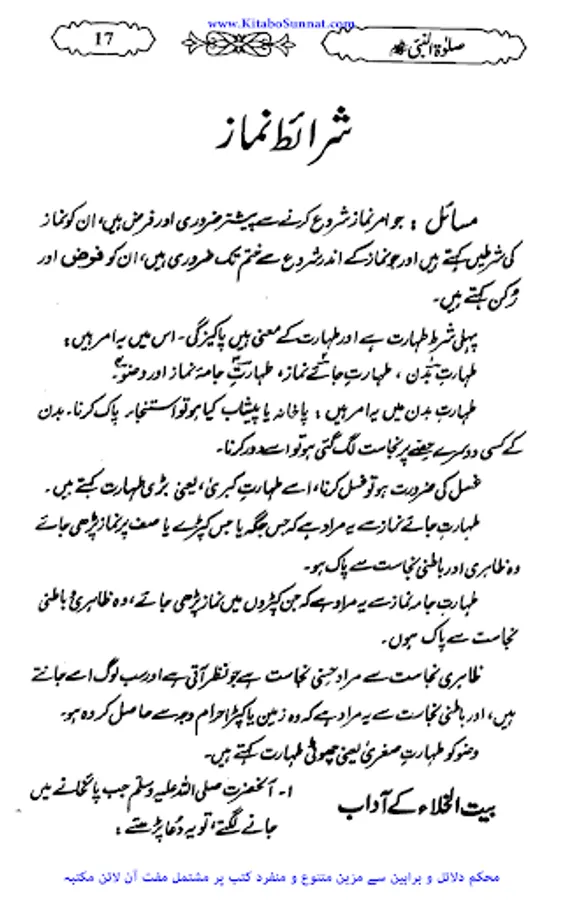 www.KitaboSunnat.com
صلوٰۃ النبیؐ
17
شرائط نماز
مسائل : جو امر نماز شروع کرنے سے پیشتر ضروری اور فرض ہیں، ان کو نماز
کی شرطیں کہتے ہیں اور جو نماز کے اندر شروع سے ختم تک ضروری ہیں، ان کو فرض اور
رُکن کہتے ہیں۔
پہلی شرط طہارت ہے اور طہارت کے معنی ہیں پاکیزگی۔ اس میں یہ امر ہیں:
طہارتِ بدن ، طہارتِ جائے نماز، طہارتِ جامۂ نماز اور وضو۔
طہارتِ بدن میں یہ امر ہیں : پاخانہ یا پیشاب کیا ہو تو استنجاء پاک کرنا۔ بدن
کے کسی دوسرے حصّے پر نجاست لگ گئی ہو تو اسے دور کرنا۔
غسل کی ضرورت ہو تو غسل کرنا، اسے طہارتِ کبریٰ، یعنی بڑی طہارت کہتے ہیں۔
طہارتِ جائے نماز سے یہ مراد ہے کہ جس جگہ یا جس کپڑے یا صف پر نماز پڑھی جائے
وہ ظاہری اور باطنی نجاست سے پاک ہو۔
طہارتِ جامہ نماز سے یہ مراد ہے کہ جن کپڑوں میں نماز پڑھی جائے، وہ ظاہری و باطنی
نجاست سے پاک ہوں۔
ظاہری نجاست سے مراد حِسّی نجاست ہے جو نظر آتی ہے اور سب لوگ اسے جانتے
ہیں، اور باطنی نجاست سے یہ مراد ہے کہ وہ زمین یا کپڑا حرام وجہ سے حاصل کردہ ہو۔
وضو کو طہارتِ صغریٰ یعنی چھوٹی طہارت کہتے ہیں۔
بیت الخلاء کے آداب
۱۔ آنحضرت صلی اللہ علیہ وسلم جب پائخانے میں
جانے لگتے، تو یہ دُعا پڑھتے :
محکم دلائل و براہین سے مزین متنوع و منفرد کتب پر مشتمل مفت آن لائن مکتبہ